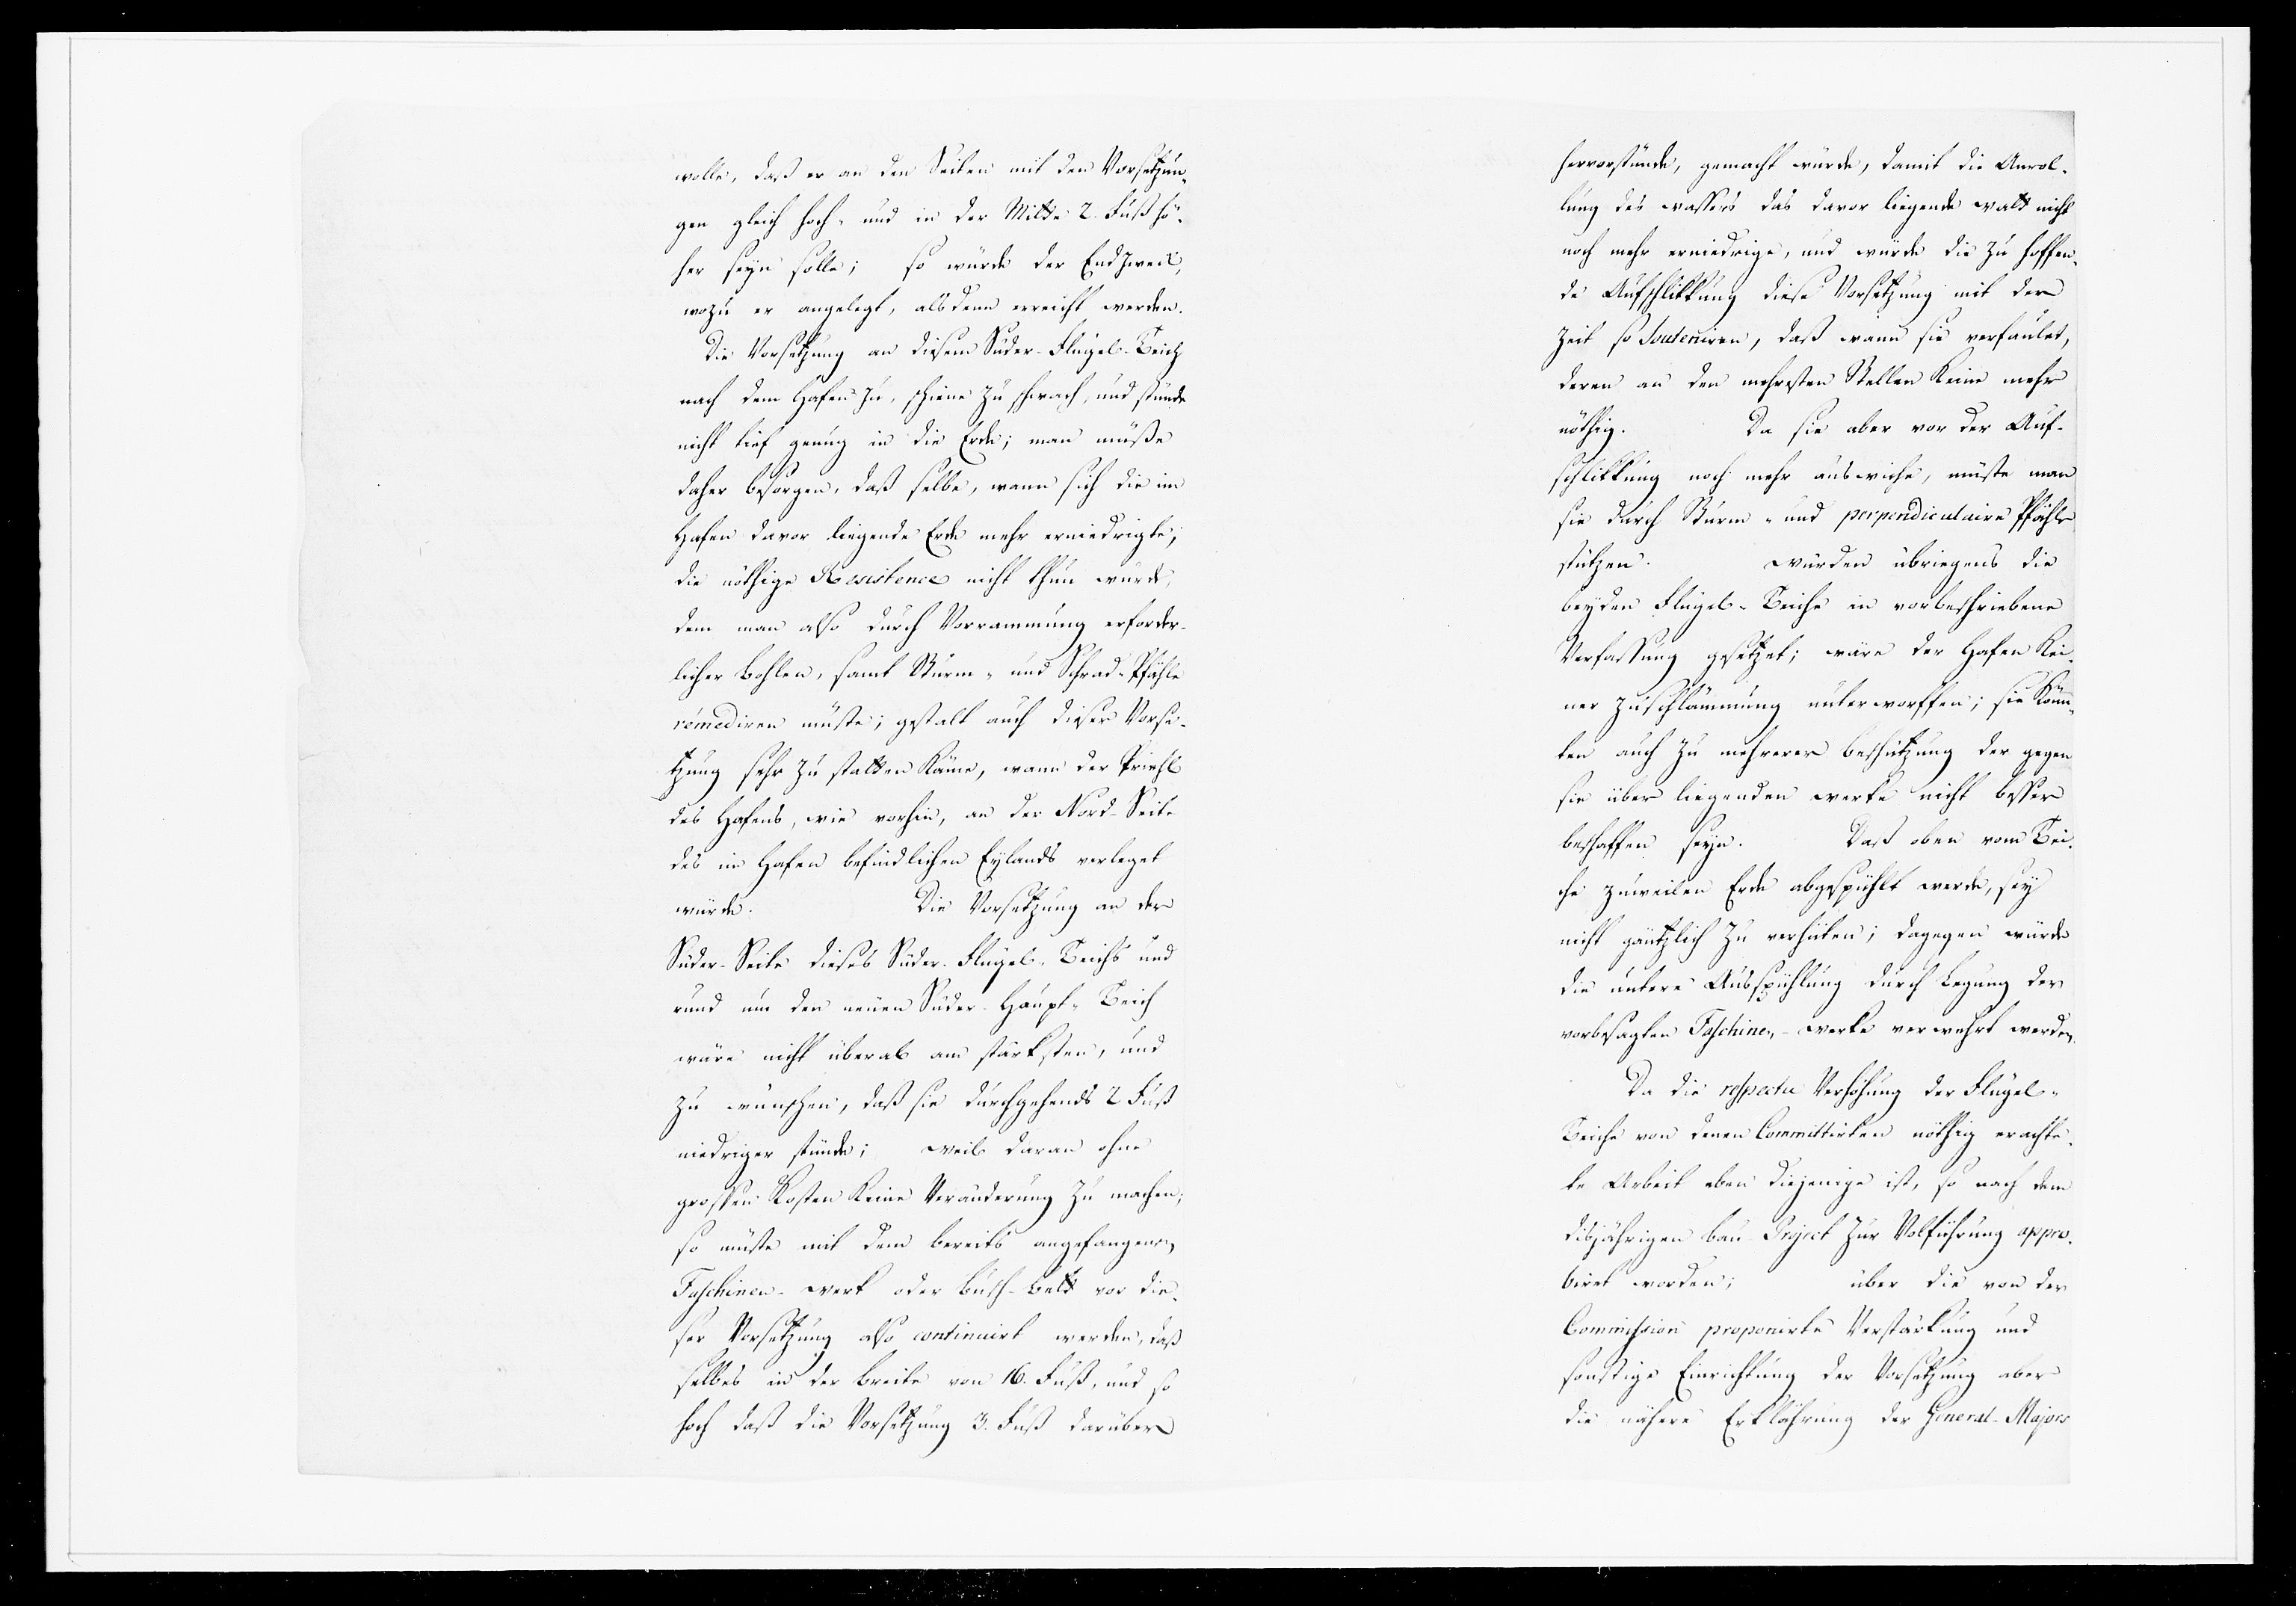 wolle, daß er an den Seiten mit den Vorsetzun-
gen gleich hoch- und in der Mitte 2. Fuß hö-
her seyn solle; so würde der Endzweck,
wozu er angelegt, alsdenn erreicht werden.
Die Vorsetzung an diesem Süder-Flügel-Teich
nach dem Hafen zu, schiene zu schwach, und stünde
nicht tief genug in die Erde; man müße
daher besorgen, daß selbe, wann sich die im
Hafen davor liegende Erde mehr erniedrigte,
die nöthige Resistence nicht thun würde,
dem man also durch Vorrammung erforder-
licher Bohlen, samt Sturm- und Schrad-Pfähle
remediren müste; gestalt auch dieser Vorse-
tzung sehr zu statten käme, wann der Priehl
des Hafens, wie vorhin, an der Nord-Seite
des im Hafen befindlichen Eylands verleget
würde. Die Vorsetzung an der
Süder-Seite dieses Süder-Flügel-Teichs und
rund um den neuen Süder-Haupt-Teich
wäre nicht überal am stärksten, und
zu wünschen, daß sie durchgehends 2 Fuß
niedriger stünde; weil daran ohne
grossen Kosten keine Veränderung zu machen;
so müste mit dem bereits angefangenen
Faschinen-werk oder Busch-Bett vor die-
ser Vorsetzung also continuirt werden, daß
selbes in der Breite von 16. Fuß, und so
hoch daß die Vorsetzung 3. Fuß darüber
hervorstünde, gemacht würde, damit die Anrol-
lung des wassers das davor liegende watt nicht
noch mehr erniedrige, und würde die zu hoffen-
de Aufschlikkung diese Vorsetzung mit der
Zeit so souteniren, daß wann sie verfaulet,
deren an den mehresten Stellen keine mehr
nöthig. Da sie aber vor der Auf-
schlikkung noch mehr auswiche, müste man
sie durch Sturm- und perpendiculaire Pfähle
stützen. würden übriegens die
beyden Flügel-Teiche in vorbeschriebene
Verfassung gesetzet; wäre der Hafen kei-
ner Zuschlämmung unterworffen; sie könn-
ten auch zu mehrerer beschützung der gegen
sie über liegenden werke nicht besser
beschaffen seyn. Daß oben vom Tei-
che zuweilen Erde abgespühlt werde, sey
nicht gäntzlich zu verhüten; dagegen würde
die untere Ausspühlung durch Legung der
vorbesagten Faschinen-werke verwehrt werden.
Da die respectu Verhöhung der Flügel-
Teiche von denen Committirten nöthig erachte-
te Arbeit eben diejenige ist, so nach dem
disjährigen Bau-Project zur Volführung appro-
birt worden; über die von der
Commission proponirte Verstärkung und
sonstige Einrichtung der Vorsetzung aber
die nähere Erklährung der General-Majors